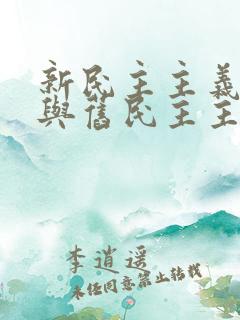 新民主主義
與舊民主主
李逍遥
未经同意禁止转载